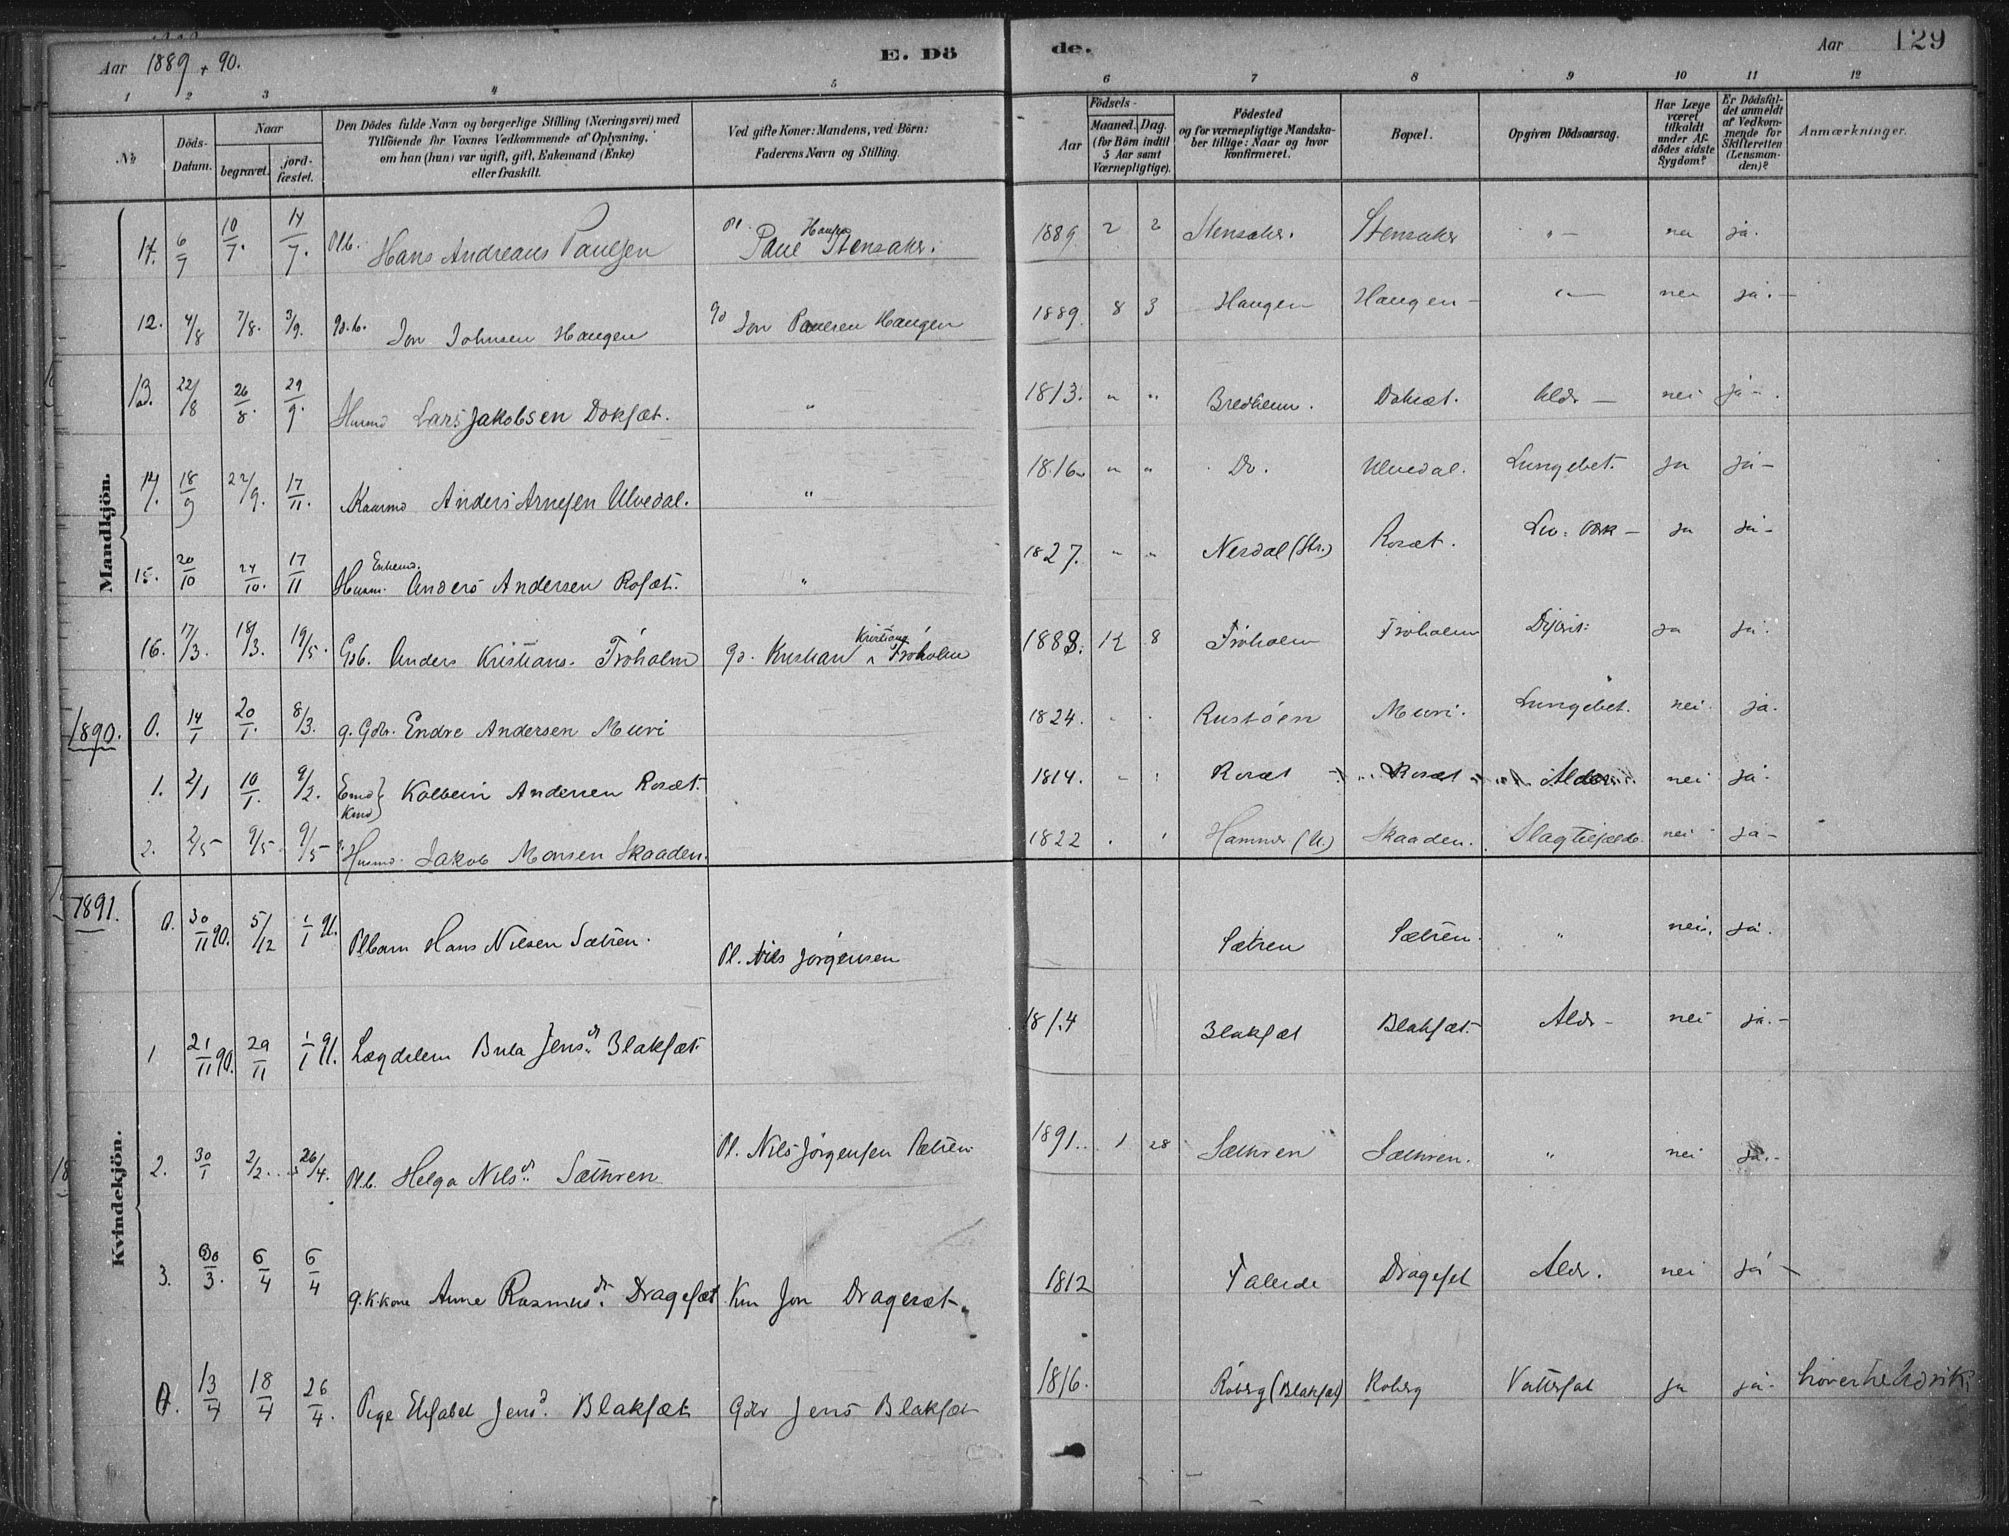 Aar 1889 + 90. E. Dö de. Aar 129
1 2 3 4 5 6 7 8 9 10 11 12
No
Döds-Datum.
Naar
begravet.
jord-fæstet.
Den Dödes fulde Navn og borgerlige Stilling (Næringsvei) med
Tilföiende for Voxnes Vedkommende af Oplysning,
om han (hun) var ugift, gift, Enkemand (Enke)
eller fraskilt.
Ved gifte Koner: Mandens, ved Börn:
Faderens Navn og Stilling.
Födsels-
Aar
Maaned. Dag.
(for Börn indtil
5 Aar samt
Værnepligtige).
Födested
og for værnepligtige Mandska-
ber tillige: Naar og hvor
konfirmeret.
Bopæl.
Opgiven Dödsaarsag.
Har Læge
været
tilkaldt
under Af-
dödes sidste
Sygdom?
Er Dödsfal-
det anmeldt
af Vedkom-
mende for
Skifteretten
(Lensman-
den)?
Anmærkninger.
Mandkjön.
11. 6/7 10/7. 14/7. Plb. Hans Andreas Paulsen Pl. Paul Hansen Stensaker. 1889 2 2 Stensaker. Stensaker " — nei ja.
12. 4/8 7/8. 3/9. Gb. b. Jon Johnsen Haugen Gb Jon Paulsen Haugen 1889. 8 3 Haugen Haugen — " — nei ja. —
13. 22/8 26/8. 29/9. Husmd Lars Jakobsen Doksæt. " 1813. " " Bredheim. Doksæt. Aldr — nei ja —.
14. 18/9 22/9. 17/11. Kaarmd Anders Arnesen Ulvedal. " 1816 " " Do. Ulvedal. Lungebet. ja ja —
15. 20/10 24/10. 17/11 Husm. Enkemd. Anders Andersen Rosæt. " 1827. " " Nesdal (Str.) Rosæt. ja ja —
16. 17/3. 18/3. 19/5. Gdb. Anders Kristians. Fröholm Gd. Kristian Kristians Fröholm 1888. 12 8 Fröholm Fröholm ja ja.
1890. 0. 14/1 20/1. 8/3. g. Gdbr. Endre Andersen Muri 1824. Rustöen Muri. Lungebet. nei ja.
1. 2/1 10/1. 9/2. Emd Kmd Kolbein Andersen Rosæt. 1814. Rosæt Rosæt Alder nei ja.
2. 2/5 9/5. 9/5 Husmd. Jakob Monsen Skaaden. 1822 Hammer (U.) Skaaden. Slagtilfælde nei ja —
1891.
Kvindekjön.
0. 30/11 90. 5/12 1/1 91. Plbarn Hans Nilsen Sætren. Pl. Nils Jörgensen Sætren Sætren. " nei, ja.
1 21/11 90. 29/11 1/1 91. Lægdslem Jensdr Blaksæt. 1814 Blaksæt Blaksæt. Aldr — nei ja. —
2. 30/1 2/2. 26/4. Plb. Helga Nilsdr. Sæthren Pl. Nils Jörgensen Sætren 1891. 1 28 Sæthren Sæthren. " nei ja. —
3. 30/3. 6/4 6/4 g. K.kone Anne Rasmusdr. Dragesæt Km Jon Dragesæt. 1812 Taleide Dragesæt Aldr. nei ja —
4. 13/4 18/4 26/4. Pige Elisabet Jensd. Blaksæt Gdbr Jens Blaksæt 1816. Röberg (Blaksæt) Röberg Vattersot ja ja.